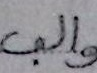 والب